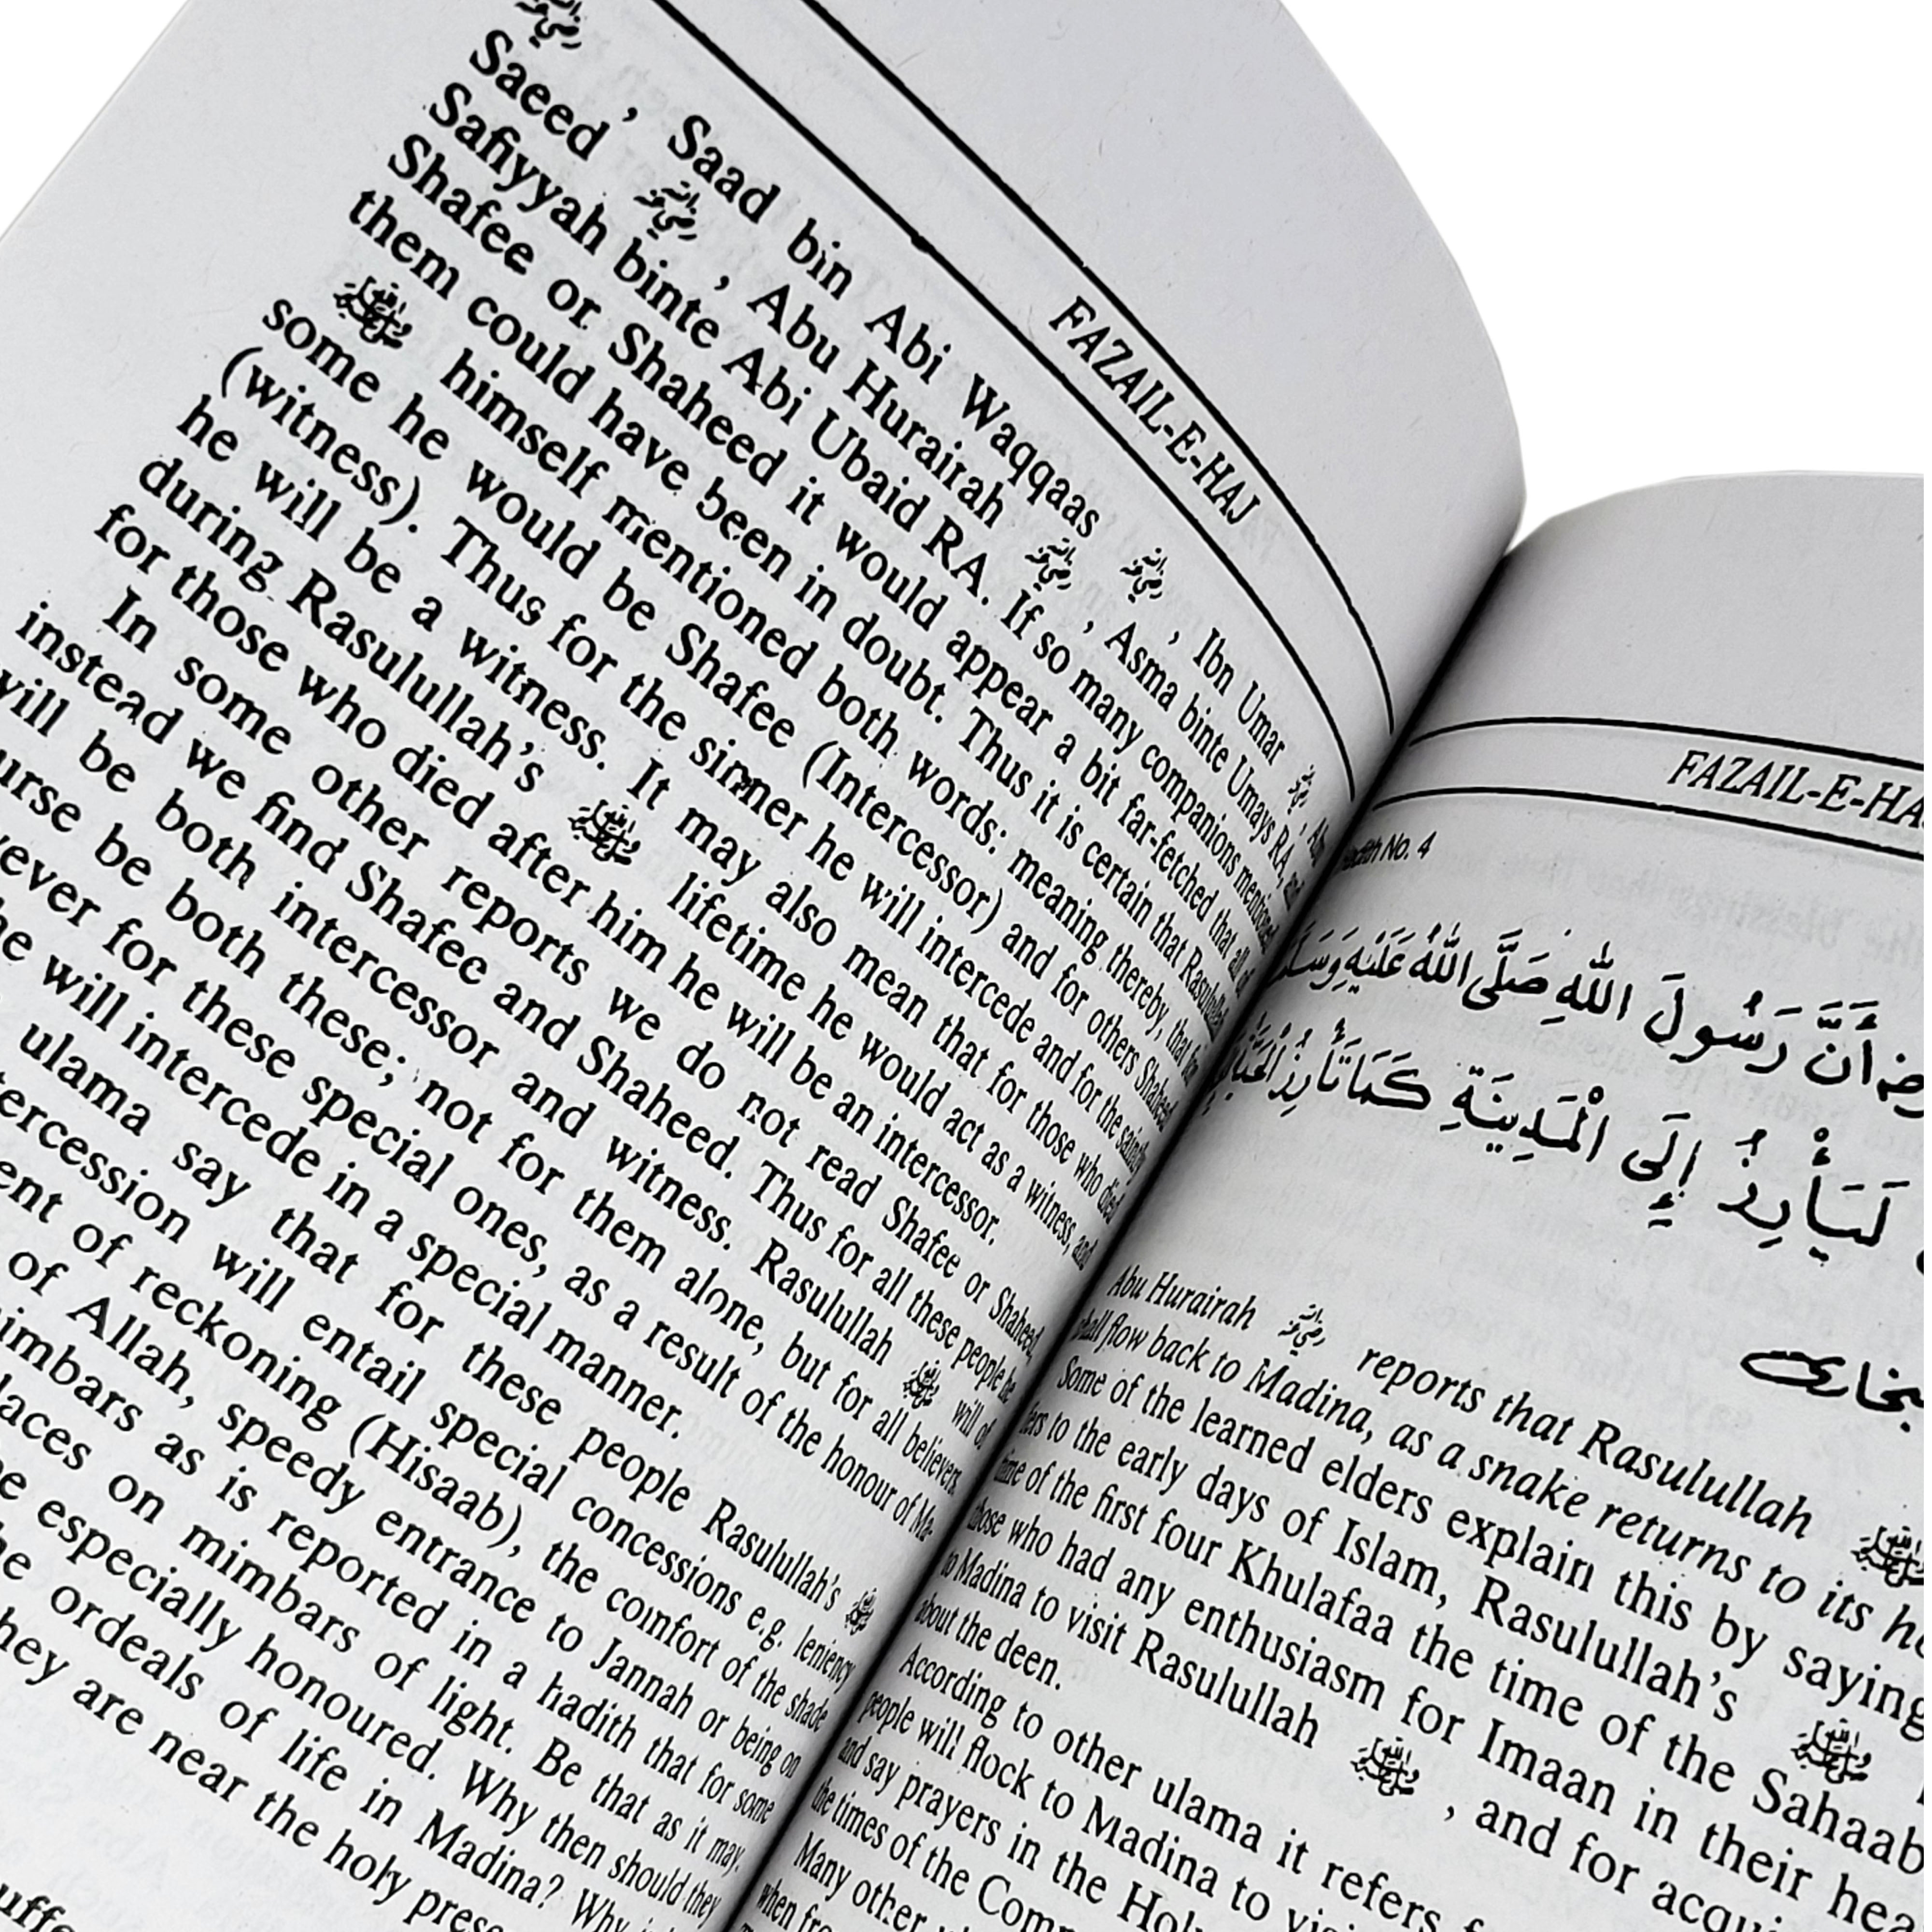 FAZAIL-E-HAJ
رضي الله عنه , Saad bin Abi Waqqaas رضي الله عنه , Ibn Umar رضي الله عنه , Abu
Saeed رضي الله عنه , Abu Hurairah رضي الله عنه , Asma binte Umays RA, and
Safiyyah binte Abi Ubaid RA. If so many companions mentioned
Shafee or Shaheed it would appear a bit far-fetched that all of
them could have been in doubt. Thus it is certain that Rasulullah
ﷺ himself mentioned both words: meaning thereby, that for
some he would be Shafee (Intercessor) and for others Shaheed
(witness). Thus for the sinner he will intercede and for the saintly
he will be a witness. It may also mean that for those who died
during Rasulullah's ﷺ lifetime he would act as a witness, and
for those who died after him he will be an intercessor.
In some other reports we do not read Shafee or Shaheed,
instead we find Shafee and Shaheed. Thus for all these people he
will be both intercessor and witness. Rasulullah ﷺ will of
be both these; not for them alone, but for all believers,
for these special ones, as a result of the honour of Ma-
he will intercede in a special manner.
ulama say that for these people Rasulullah's ﷺ
will entail special concessions e.g. leniency
of reckoning (Hisaab), the comfort of the shade
of Allah, speedy entrance to Jannah or being on
mimbars as is reported in a hadith that for some
on mimbars of light. Be that as it may,
especially honoured. Why then should they
ordeals of life in Madina? Why
they are near the holy
FAZAIL-E-HA
No. 4
أَنَّ رَسُولَ اللهِ صَلَّى اللهُ عَلَيْهِ وَسَلَّ
لَيَأْرِزُ إِلَى الْمَدِينَةِ كَمَا تَأْرِزُ
Abu Hurairah رضي الله عنه reports that Rasulullah ﷺ
shall flow back to Madina, as a snake returns to its
Some of the learned elders explain this by saying
to the early days of Islam, Rasulullah's ﷺ
time of the first four Khulafaa the time of the Sahaab
those who had any enthusiasm for Imaan in their
to Madina to visit Rasulullah ﷺ , and for
about the deen.
According to other ulama it refers
people will flock to Madina to
and say prayers in the
the times of the
Many other
when